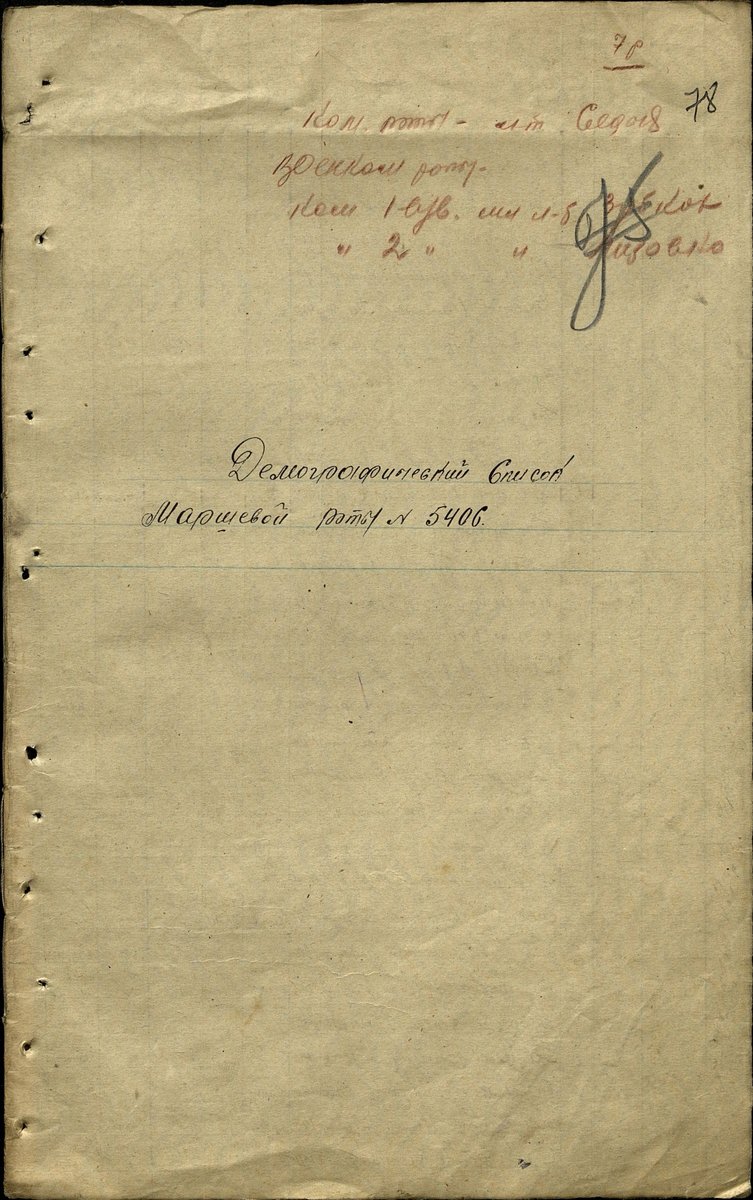 7 р
78
Ком. роты - л-т Седов
Военком роты -
Ком 1 взв. мл л-т
" 2 " "
Демографический Список
Маршевой роты № 5406.